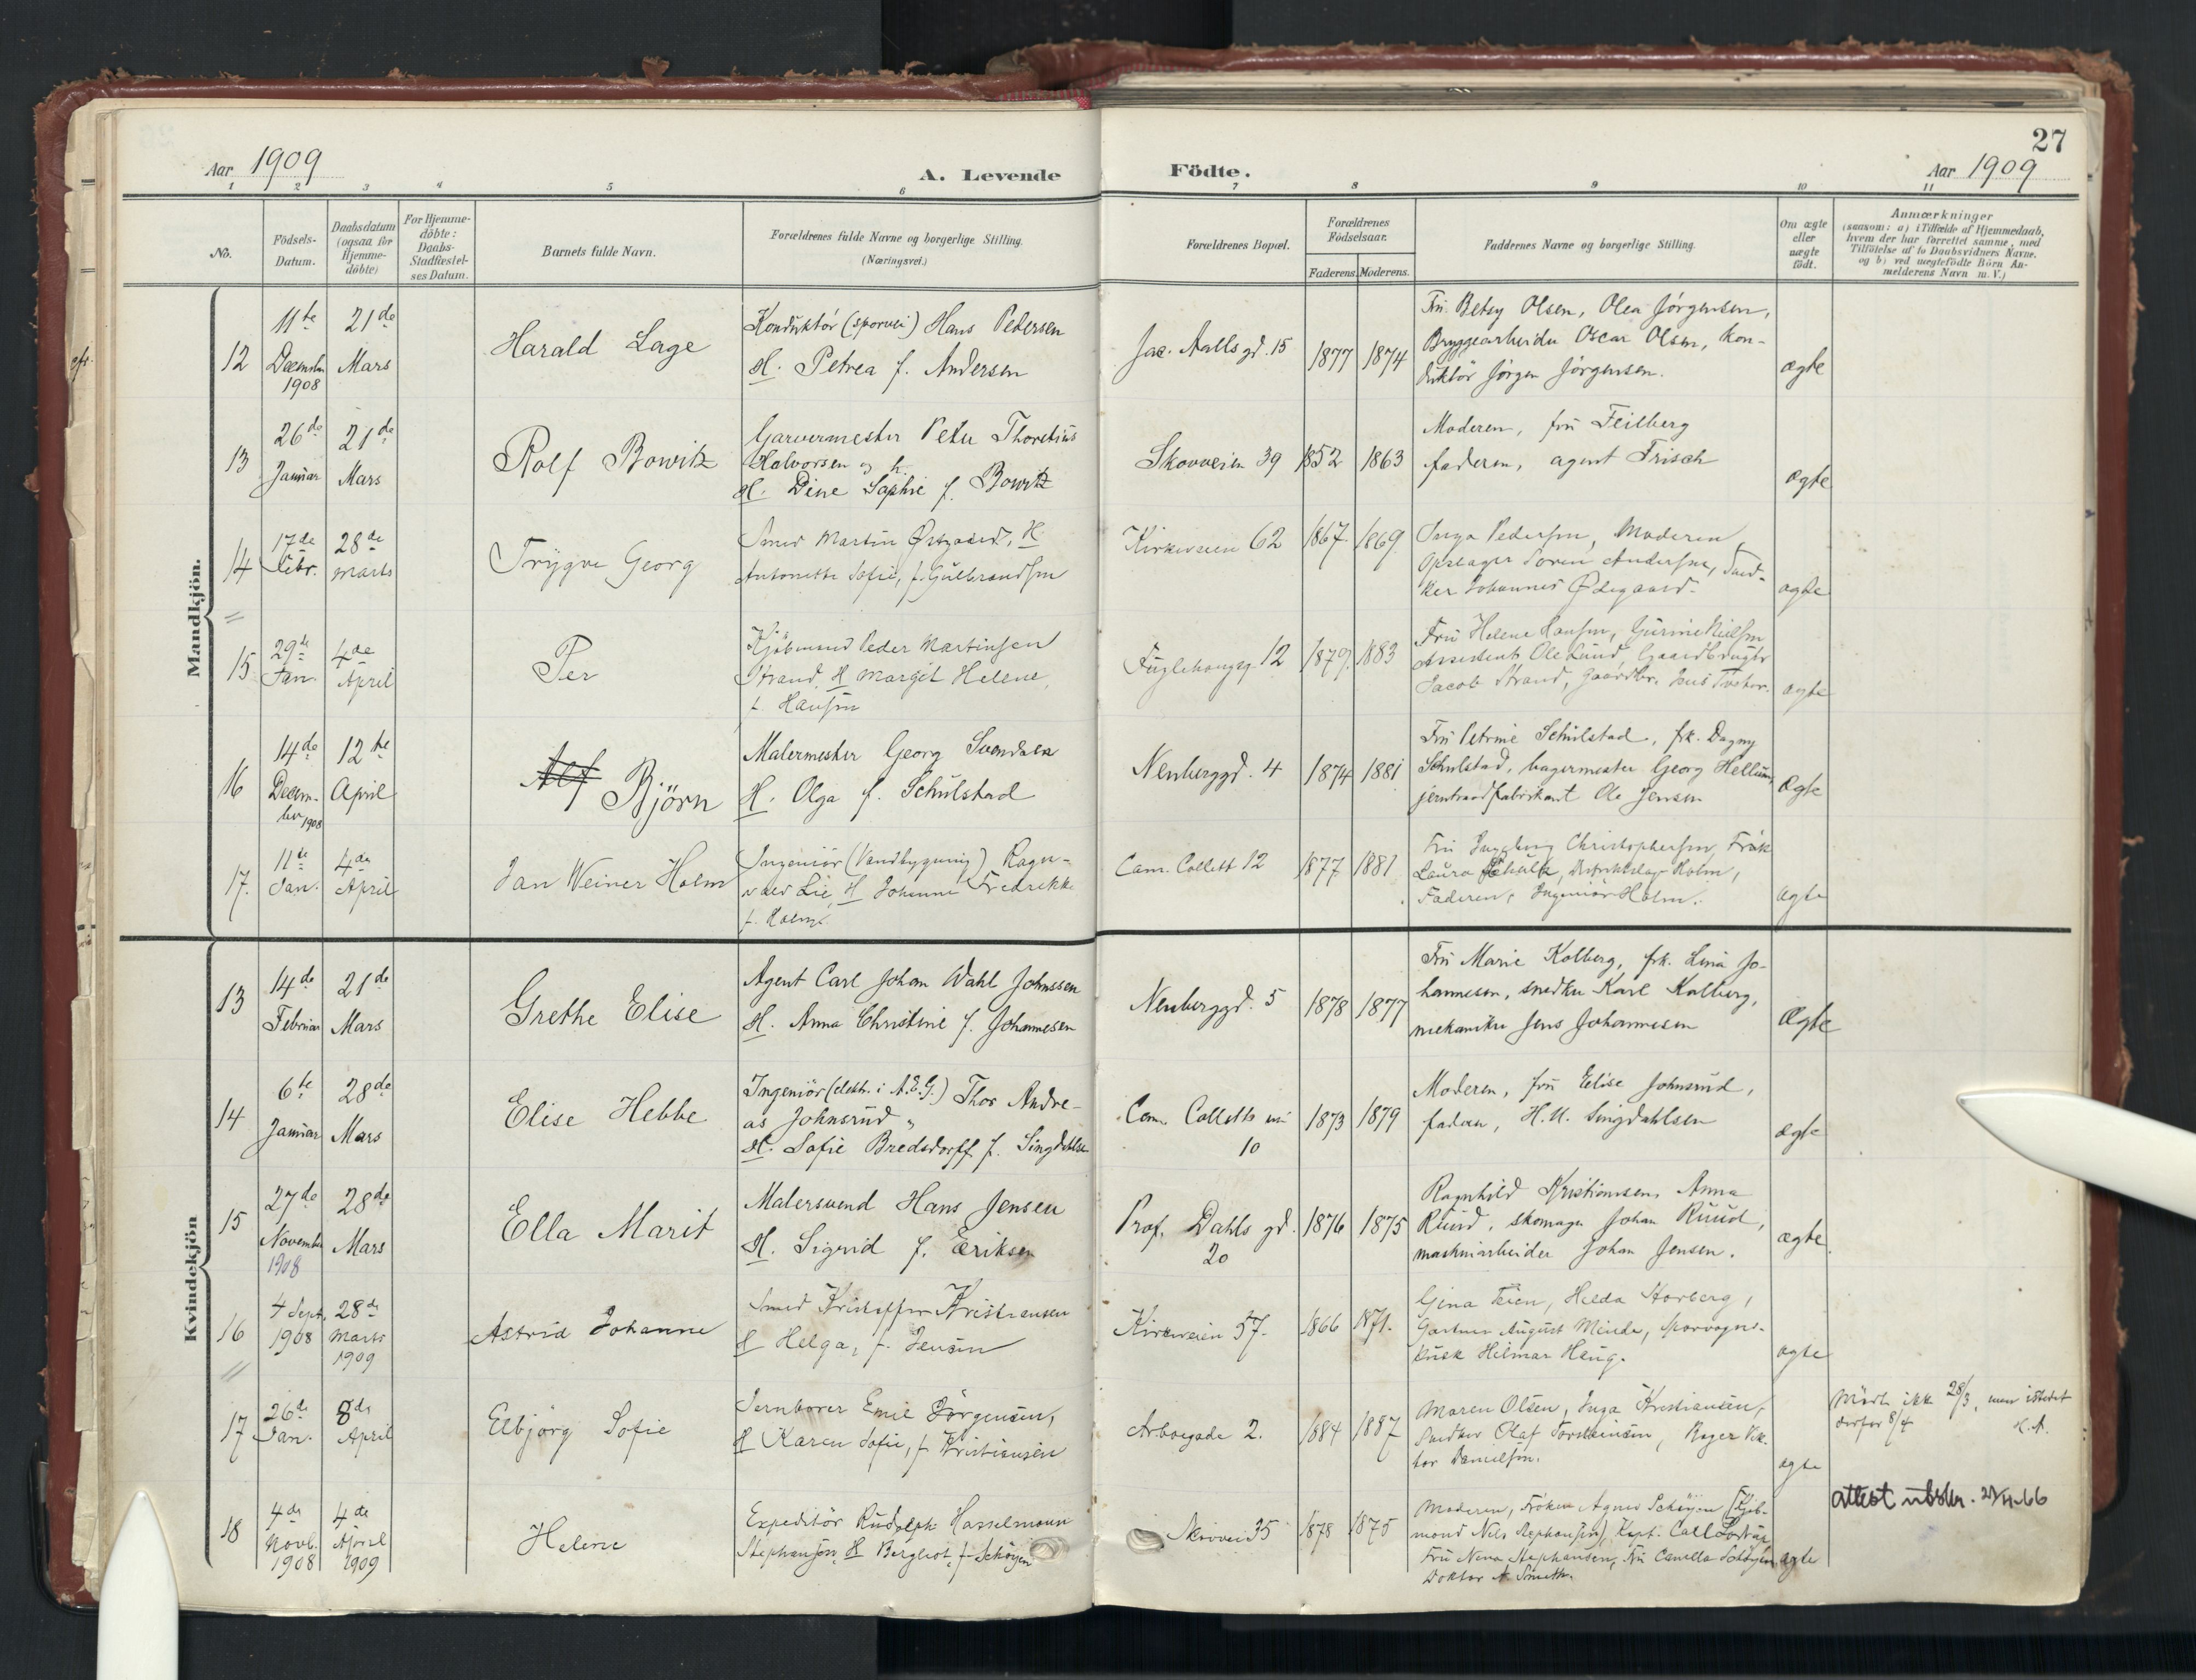 27
Aar 1909
A. Levende
Födte.
Aar 1909
1 2 3 4 5 6 7 8 9 10 11
No.
Födsels-
Datum.
Daabsdatum
(ogsaa for
Hjemme-
döbte)
For Hjemme-
döbte:
Daabs-
Stadfæstel-
ses Datum.
Barnets fulde Navn.
Forældrenes fulde Navne og borgerlige Stilling.
(Næringsvei.)
Forældrenes Bopæl.
Forældrenes
Födselsaar.
Faderens. Moderens.
Faddernes Navne og borgerlige Stilling.
Om ægte
eller
uægte
født.
Anmærkninger
(saasom: a) i Tilfælde af Hjemmedaab,
hvem der har forrettet samme, med
Tilföielse af to Daabsvidners Navne.
og b) ved uægtefödte Börn An-
melderens Navn m. V.)
Mandkjön.
12
11te
December
1908
21de
Mars
Harald Lage
Konduktör (sporvei) Hans Pedersen
H. Petrea f. Andersen
Jac. Aalls gd. 15
1877
1874
Fru Betsy Olsen, Olea Jörgensen,
Bryggearbeider Oscar Olsen, kon-
duktör Jörgen Jörgensen.
ægte
13
26de
Januar
21de
Mars
Rolf Bowitz
Garvermester Peter Thoretius
Halvorsen og h.
H. Dine Sophie f. Bowitz
Skovveien 39
1852
1863
Moderen, fru Feilberg
faderen, agent Frisch
ægte
14
17de
Febr.
28de
Marts
Trygve Georg
Smed Martin Østgaard, H
Antonette Sofie, f. Gulbrandsen
Kirkeveien 62
1867.
1869.
Inga Pedersen, Moderen
Opsager Søren Andersen, Sned-
ker Johannes Ødegaard.
ægte
15
29de
Jan.
4de
April
Per
Kjöbmand Peder Martinsen
Strand, H Margit Helene,
f. Hansen
Fuglehaugsg. 12
1879.
1883
Fru Helene Hansen, Gurine Nielsen
Assistent Ole Lund, Gaardbruger
Jacob Strand, Gaardbr. Jens Tveter.
ægte
16
14de
Decem-
ber 1908
12te
April
Alf Björn
Malermester Georg Svendsen
H. Olga f. Schulstad
Neuberggd. 4
1874
1881
Fru Petrine Schulstad, frk. Dagny
Schulstad, bagermester Georg Hellum,
jerntraadfabrikant Ole Jensen
Ægte
17.
11te
Jan.
4de
April
Jan Weiner Holm
Ingeniör (Vandbygning) Ragn-
vald Lie, H Johanne Fredrikke
f. Holm.
Cam. Collett 12
1877
1881
Fru Ingeborg Christophersen, Frök
Laura Schulk, Holm,
Faderen, Ingeniör Holm.
ægte
Kvindekjön
13
14de
Februar
21de
Mars
Grethe Elise
Agent Carl Johan Wahl Johnssen
H. Anna Christine f. Johannesen
Neuberggd. 5
1878
1877
Fru Marie Kolberg, frk. Lina Jo-
hannesen, snedker Karl Kolberg,
mekaniker Jens Johannesen
Ægte
14
6te
Januar
28de
Mars
Elise Hebbe
Ingeniör (elektr. i A.E.G.) Thor Andre-
as Johnsrud
H. Sofie Bredsdorff f. Singdahlsen
Cam. Colletts vei
10
1873
1879
Moderen, fru Elise Johnsrud,
faderen, H. U. Singdahlsen
ægte
15
27de
November
1908
28de
Mars
Ella Marit
Malersvend Hans Jensen
H. Sigrid f. Eriksen
Prof. Dahls gd.
20
1876
1875
Ragnhild Kristiansen, Anna
Ruud, skomager Johan Ruud,
maskinarbeider Johan Jensen.
ægte.
16
4 Sept.
1908
28de
Marts
1909
Astrid Johanne
Smed Kristoffer Kristiansen
H Helga, f. Jensen
Kirkeveien 57.
1866
1871.
Gina Teien, Hilda Storberg,
Gartner August Minde, Sporvogns-
kusk Hilmar Haug.
ægte
17
26de
Jan.
8de
April
Elbjörg Sofie
Jernborer Emil Jörgensen,
H Karen Sofie, f. Kristiansen
Arbogade 2.
1884
1887
Maren Olsen, Inga Kristiansen,
Snedker Olaf Torsteinsen, Bager Vik-
tor Danielsen.
ægte
Mödte ikke 28/3, men istedet
derfor 8/4 H.A.
18
4de
Novb.
1908
4de
April
1909
Helene
Expeditör Rudolph Hasselmann
Stephansen, H Bergliot, f. Schöyen
Skovvei 35
1878
1875
Moderen, Fröken Agnes Schöyen, Kjöb-
mand Nils Stephansen, Kapt. Carl
Fru Nena Stephansen, Fru Camilla Schöyen,
Doktor A Smith.
ægte
attest utsted.